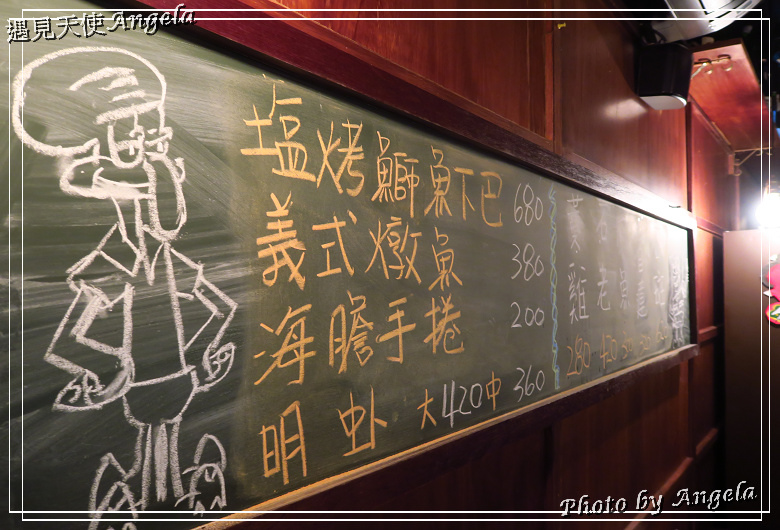 遇見天使Angela
塩烤鰤魚下巴 680
義式燉魚 380
海膽手捲 200
明虾 大420中 360
雞 老
280 420
Photo by Angela